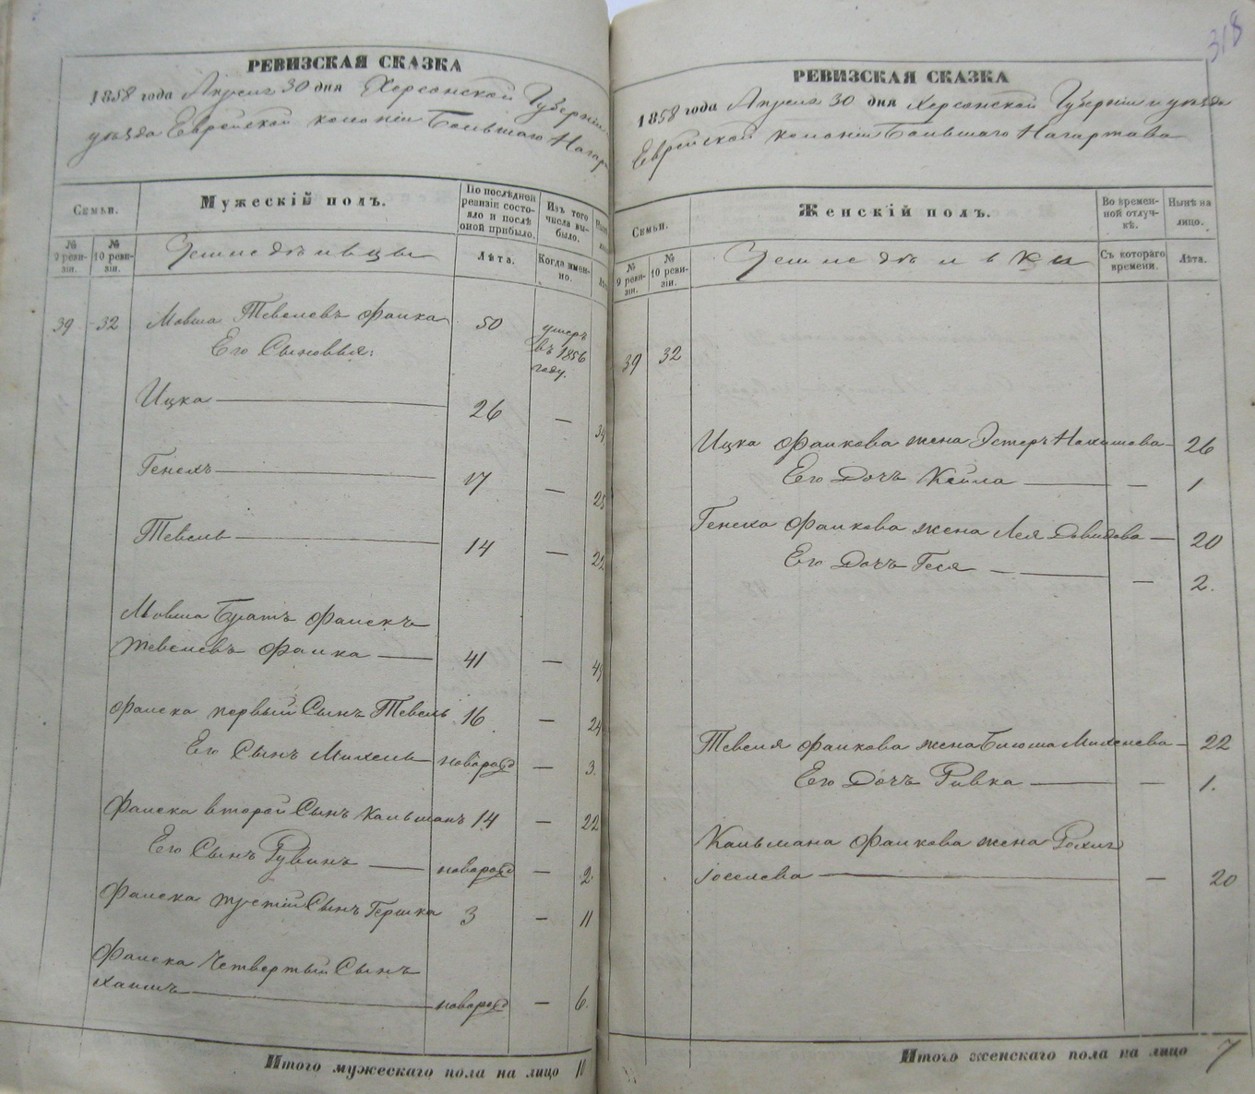 РЕВИЗСКАЯ СКАЗКА
1858 года Апреля 30 дня Херсонской Губерніи
уѣзда Еврейской колоніи Большаго Нагар
Семьи.
Мужескій полъ.
По послѣдней ревизіи состояло и послѣ оной прибыло.
Изъ того числа выбыло.
№ 9 ревизіи.
№ 10 ревизіи.
Земледѣльцы
Лѣта.
Когда именно.
39 32 Мовша Тевелевъ Фалка 50 умеръ въ 1856 году.
Его Сыновья:
Ицка — 26 —
Генехъ — 17 —
Тевель — 14 —
Мовша Братъ Фалекъ
Тевелевъ Фалка — 41 —
Фалека первый Сынъ Тевель 16 — 24
Его Сынъ Михель новорожд — 3.
Фалека второй Сынъ Кальманъ 14 — 22
Его Сынъ Рувинъ — новорожд — 2.
Фалека третій Сынъ Гершка 3 — 11
Фалека Четвертый Сынъ
Хаимъ — новорожд — 6.
Итого мужескаго пола на лицо 11
318
РЕВИЗСКАЯ СКАЗКА
1858 года Апреля 30 дня Херсонской Губерніи и уѣзда
Еврейской колоніи Большаго Нагартова
Семьи.
Женскій полъ.
Во временной отлучкѣ.
Нынѣ на лицо.
№ 9 ревизіи.
№ 10 ревизіи.
Земледѣльки
Съ котораго времени.
Лѣта.
39 32
Ицка Фалкова жена Эстеръ Нахимова — 26
Его Дочь Кейла — — 1
Генеха Фалкова жена Лея Давидова — 20
Его Дочь Геся — — 2.
Тевеля Фалкова жена Блюма Михелева — 22
Его Дочь Ривка — — 1.
Кальмана Фалкова жена Рохля
Іоселева — — 20
Итого женскаго пола на лицо 7